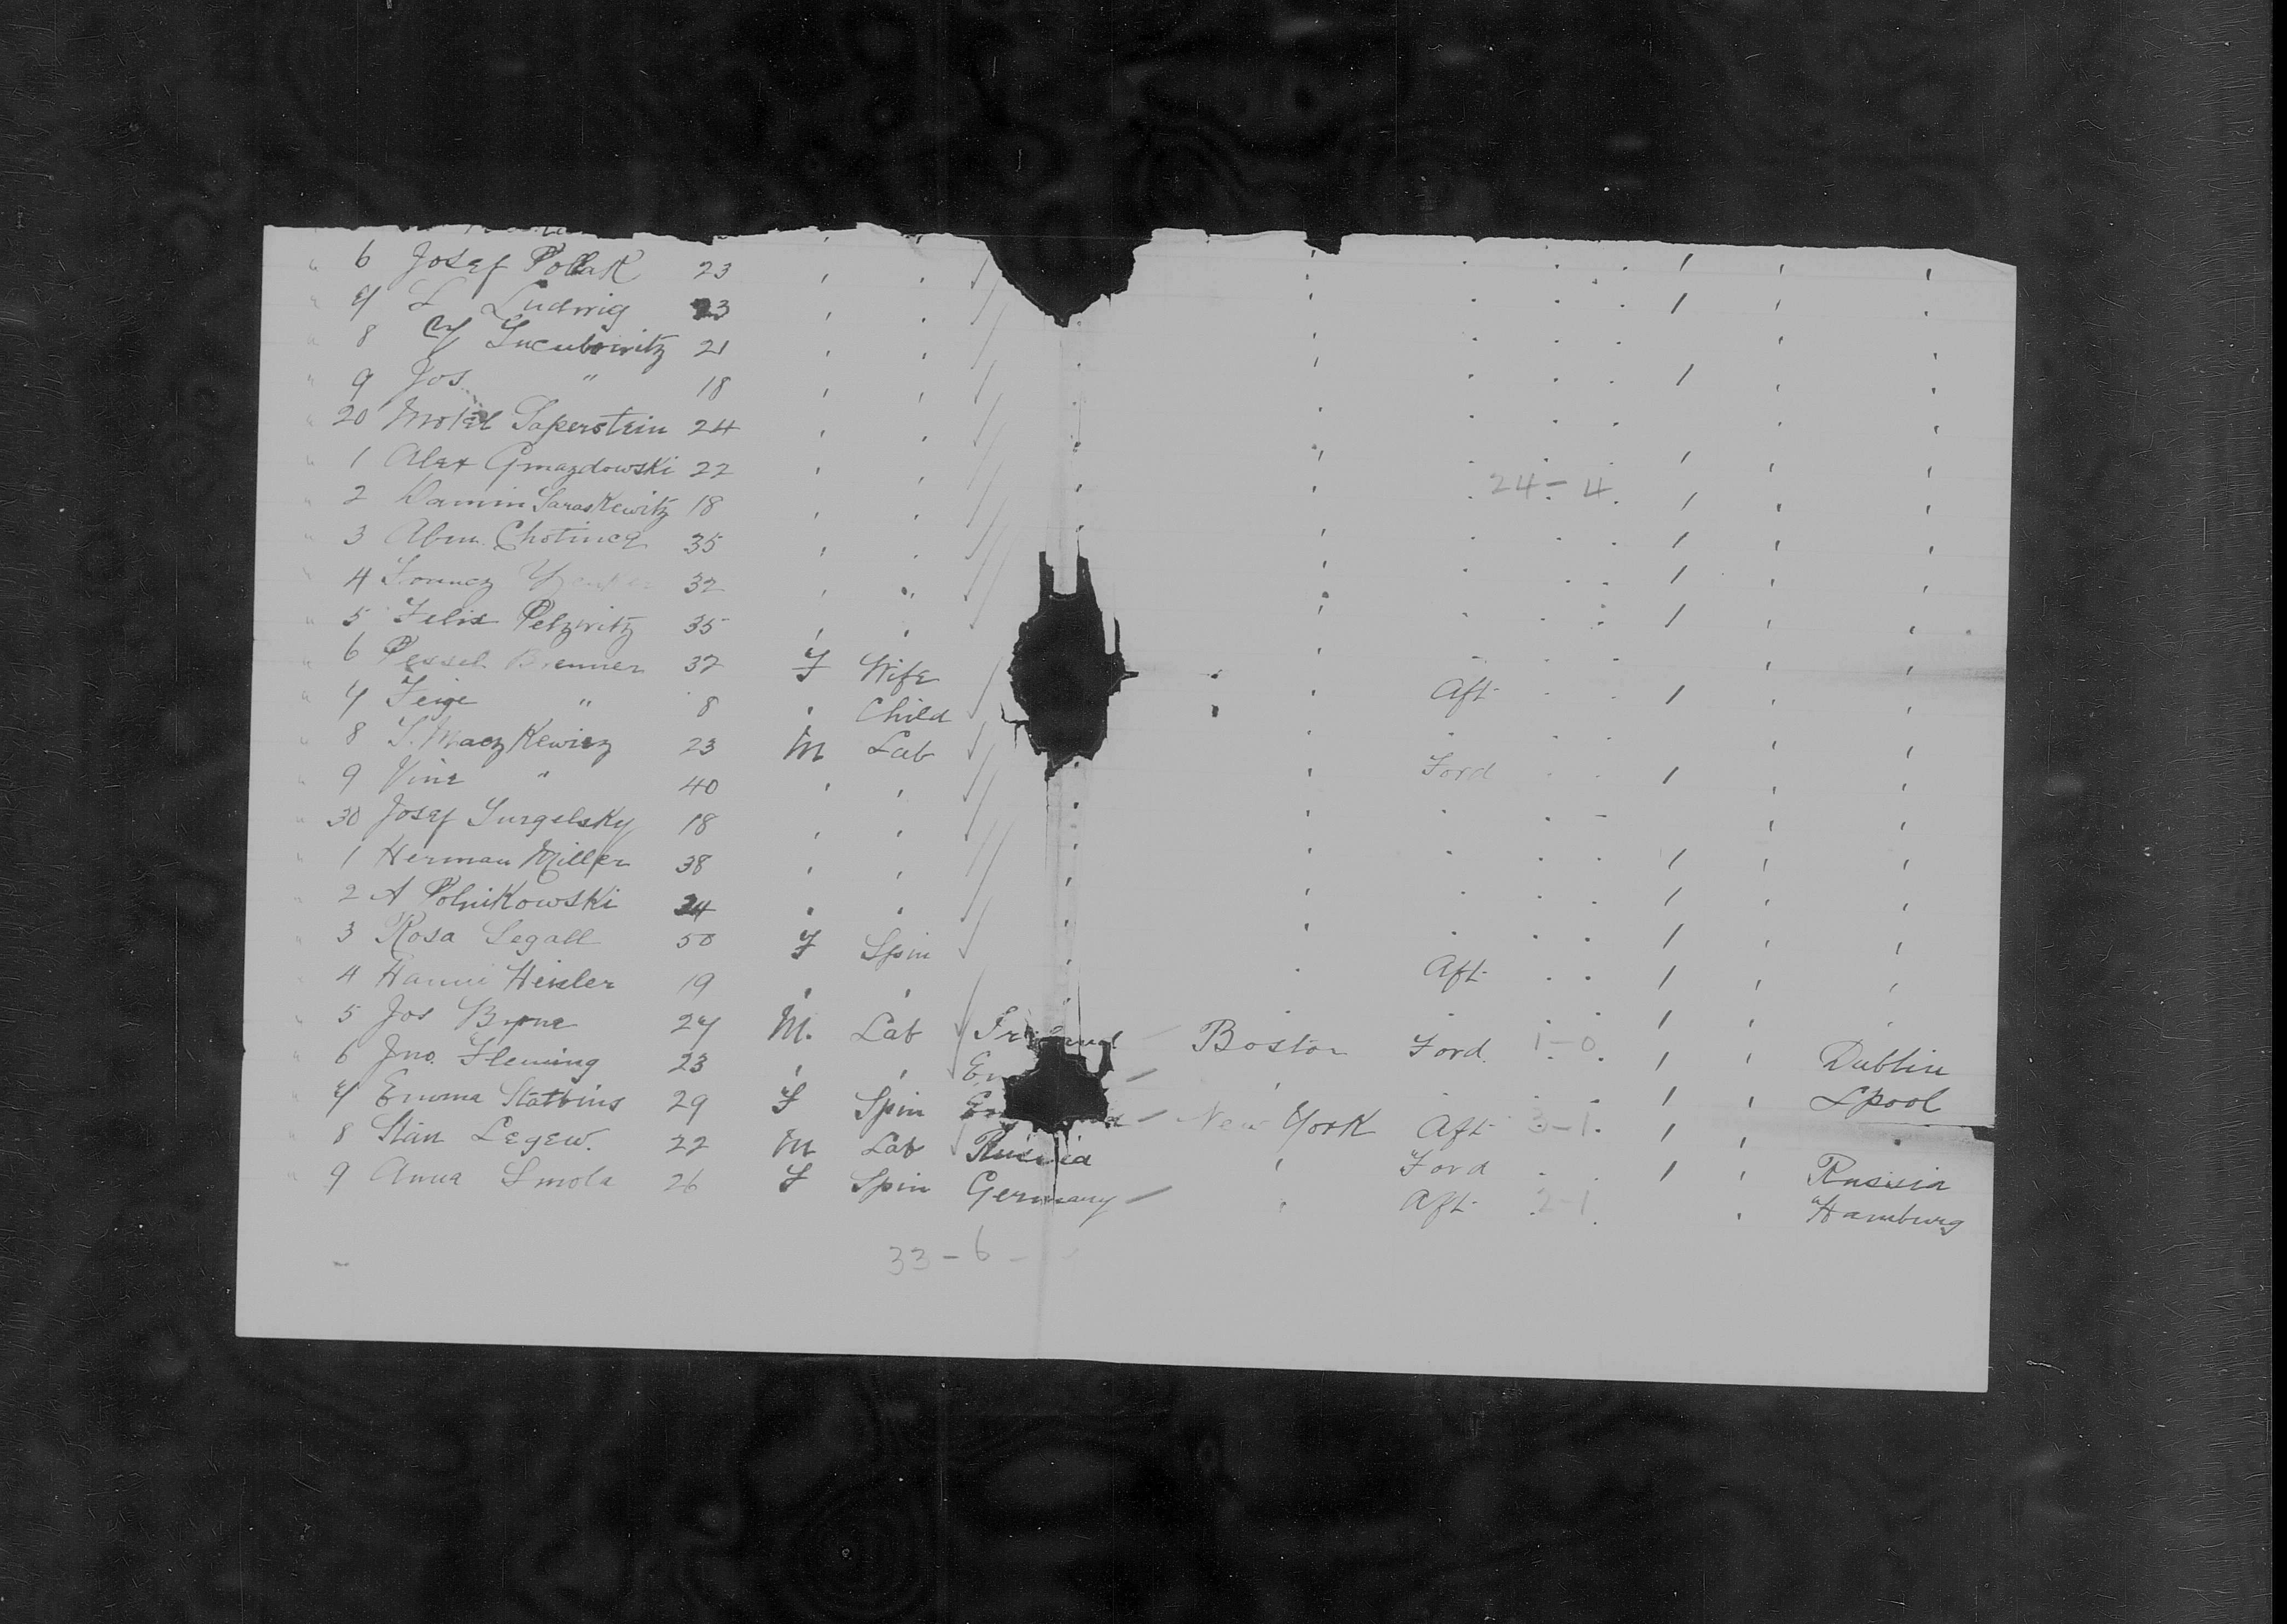 6 Josef Pollak 23
7 L Ludwig 23
8 21
9 Jos " 18
20 Motel Saperstein 24
1 Alex Gmazdowski 22
2 Damin Saraskewitz 18 24-4
3 Abm. 35
4 32
5 Felix Pelzwitz 35
6 Pessel Brenner 32 F Wife
7 Feige " 8 Child Aft
8 S. Maczkewicz 23 M Lab
9 Vine " 40 Ford
30 Josef Surgelsky 18
1 Herman Miller 38
2 A Polnikowski 34
3 Rosa Segall 50 F Spin
4 Hanni Heisler 19 Aft
5 Jos Byrne 27 M. Lab Boston Ford. 1-0 Dublin
6 Jno. Fleming 23 Lpool
7 Emma Statbins 29 F Spin New York Aft 3-1
8 Stan Legew. 22 M Lab Russia Ford Russia
9 Anna Smola 26 F Spin Germany Aft 2-1 Hamburg
33-6